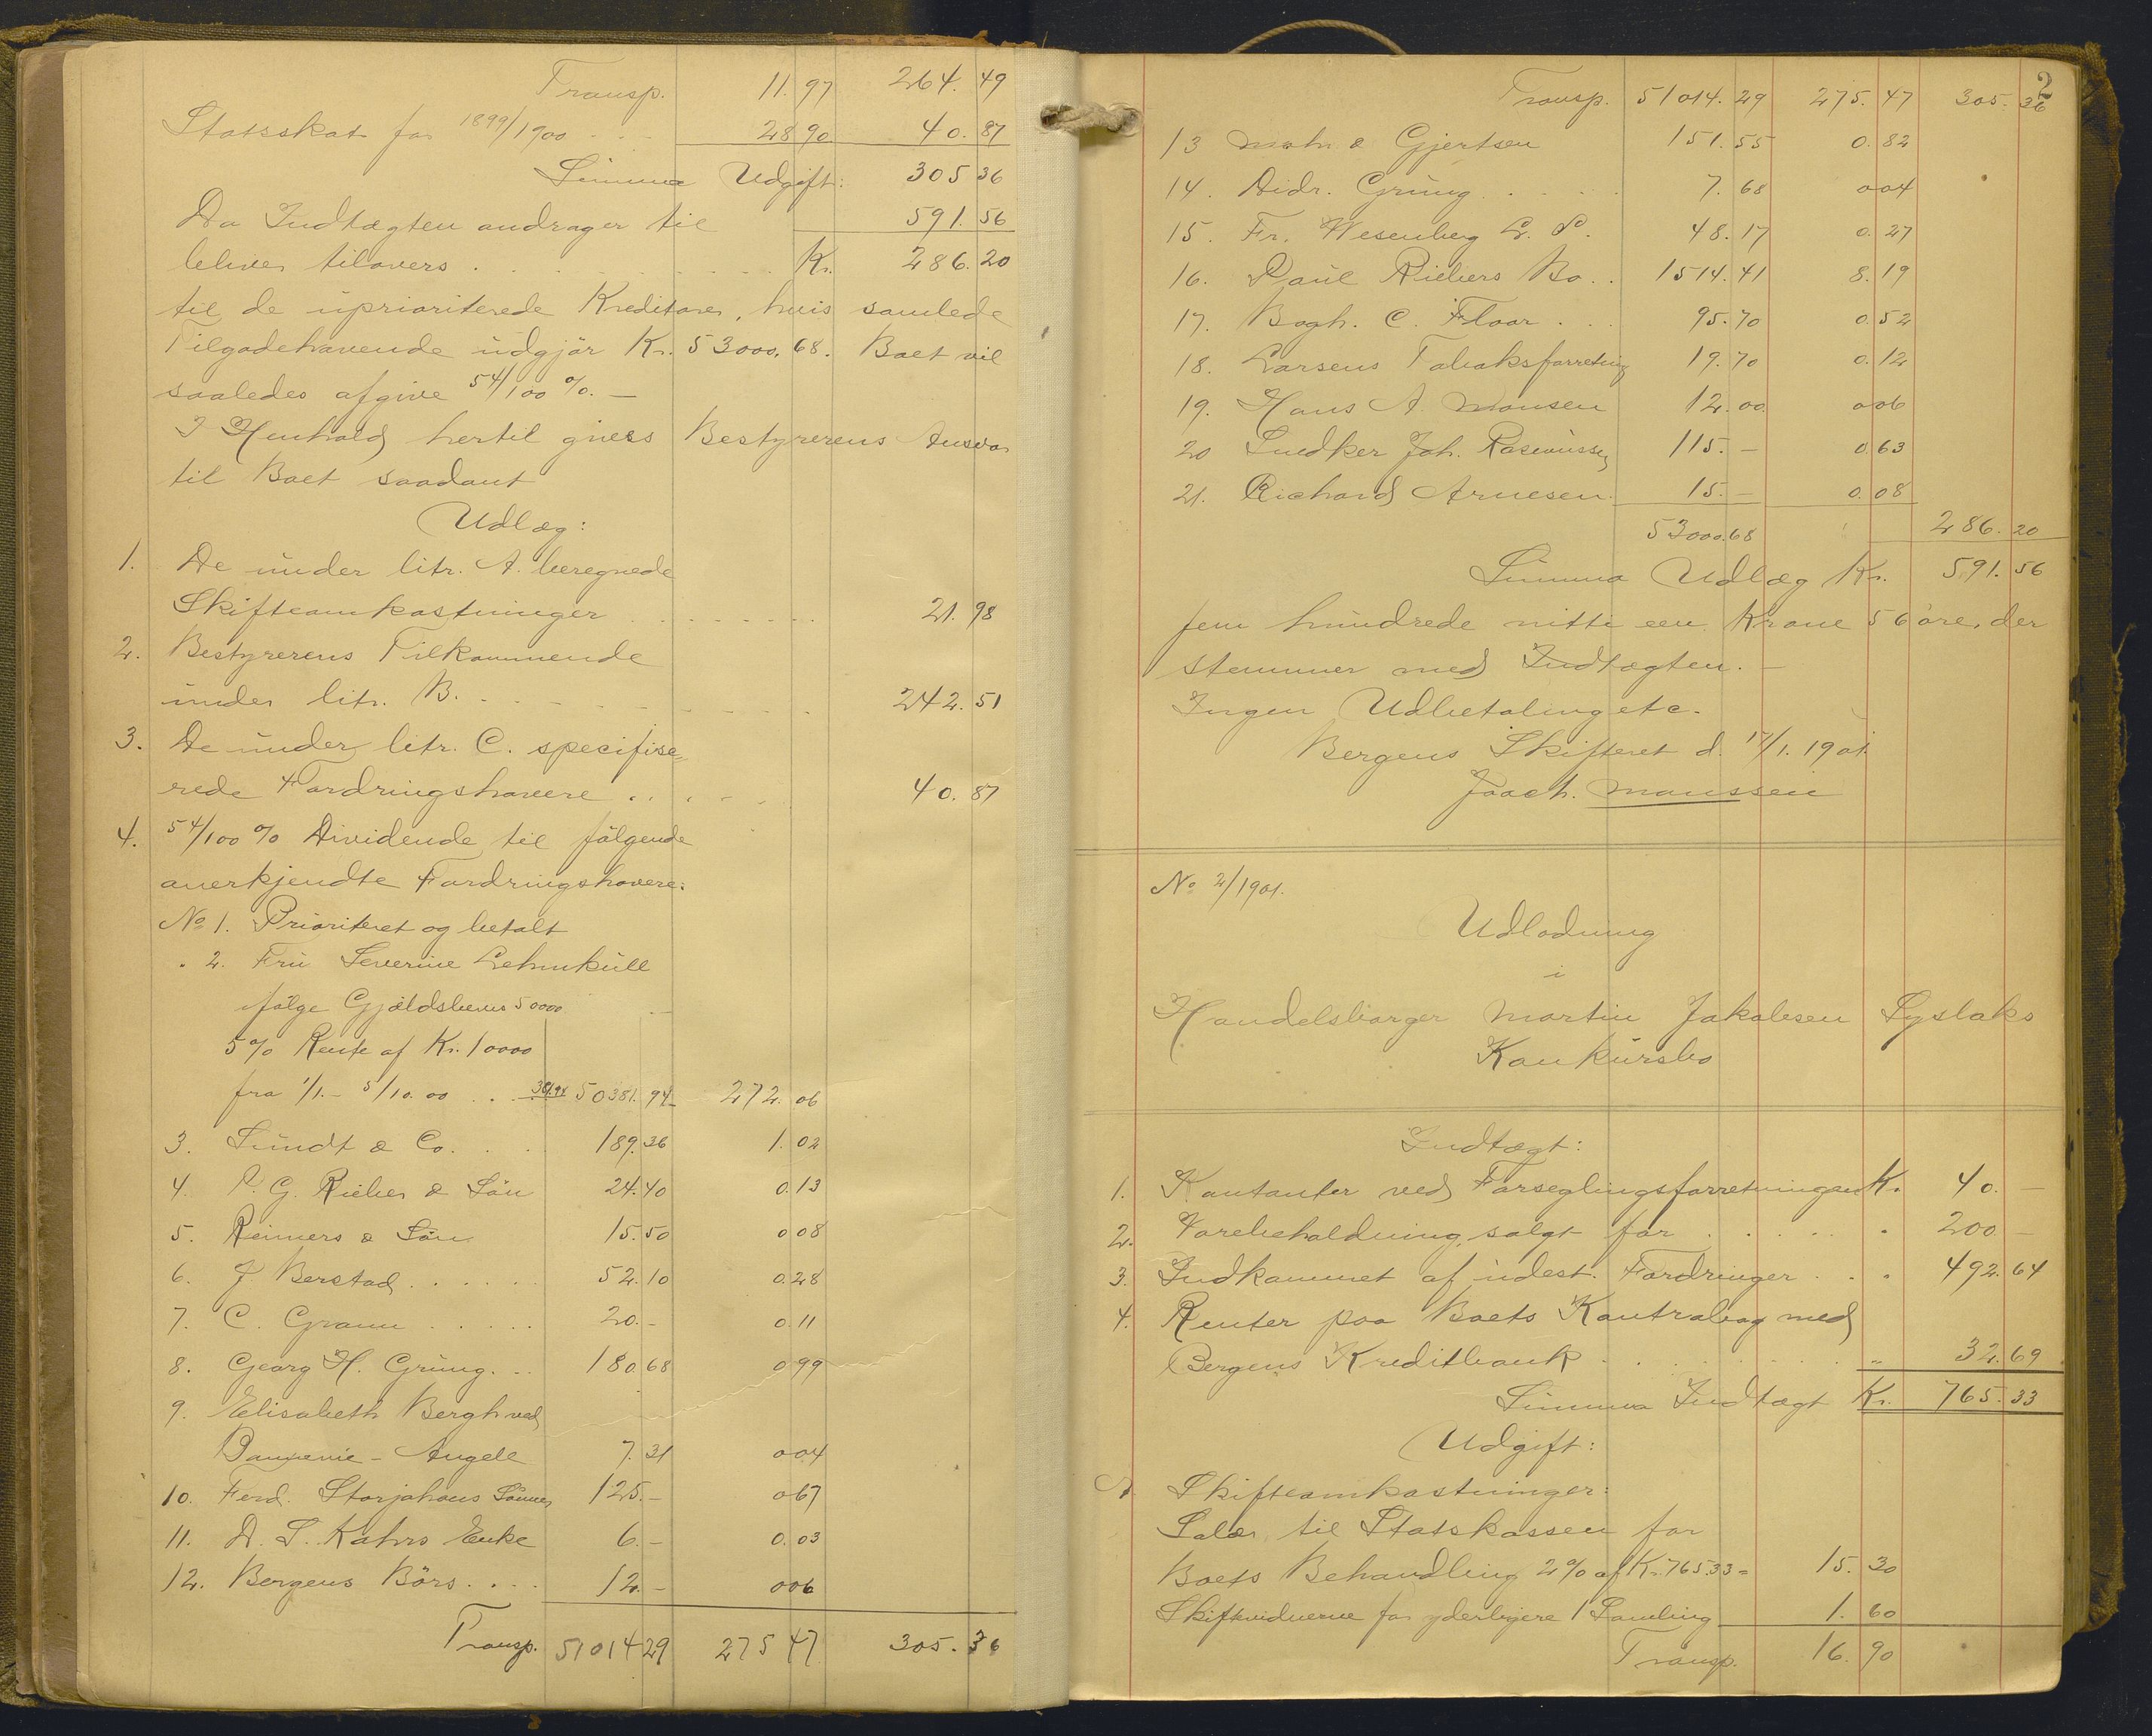 Transp. 11. 97 264. 49
Statsskat for 1899/1900 - - - 28 90. 40. 87
Summa Udgift: 305 36
Da Indtægten andrager til 591. 56
bliver tilovers . . . . . . . Kr. 286. 20
til de uprioriterede Kreditorer, hvis samlede
Tilgodehavende udgjør Kr. 53000.68. Boet vil
saaledes afgive 54/100 %. —
I Henhold hertil gives Bestyrerens Ansvar
til Boet saadant
Udlæg:
1. De under litr. A. beregnede
Skifteomkostninger . . . . . . . . 21. 98
2. Bestyrerens Tilkommende
under litr. B. - - - - - - - - . 242. 51
3. De under litr. C. specifise=
rede Fordringshavere . . . - - . 40. 87
4. 54/100 % Dividende til følgende
anerkjendte Fordringshavere:
No 1. Prioriteret og betalt
" 2. Fru Severine Lehmkull
ifølge Gjældsbevis 50000
5% Rente af Kr. 10000
fra 1/1.- 5/10.00 . . . 381.94 50381. 94 272. 06
3. Sundt & Co. . . . 189. 36 1. 02
4. P. G. Rieber & Søn 24. 40 0. 13
5. Reimers & Søn 15. 50 0 08
6. J Berstad . . . . . . 52. 10 0. 28
7. C. Gran . . . . . 20. - 0. 11
8. Georg H. Grung. . . 180. 68 0 99
9. Elisabeth Bergh ved
- Angell 7. 31 0 04
10. Ferd. Storjohans Sønner 125. - 0 67
11. D. S. Kahrs Enke 6. - 0. 03
12. Bergens Børs . . . . 12. - 0 06
Transp. 51014 29 275 47 305. 36
2
Transp. 51014. 29 275. 47 305. 36
13 Mohn & Gjertsen 151. 55 0. 82
14. Didr. Grung . . . . 7. 68 0 04
15. Fr. Wesenberg L. S. 48. 17 0. 27
16. Paul Riebers Bo . . 1514. 41 8. 19
17. Bogh. C. Floor . . . 95. 70 0. 52
18. Larsens Tobaksforretning 19. 70 0. 12
19. Hans A. Monsen 12. 00 0 06
20 Snedker Joh. Rasmussen 115. - 0. 63
21. Richard Arnesen. 15. - 0. 08
53000.68 286. 20
Summa Udlæg Kr. 591. 56
fem hundrede nitti een Krone 56 øre, der
stemmer med Indtægten. —
Ingen Udbetaling etc.
Bergens Skifteret d. 17/1. 1901.
Joach. Monssen
No 2/1901.
Udlodning
i
Handelsborger Martin Jakobsen Syslaks
Konkursbo
Indtægt:
1. Kontanter ved Forseglingsforretningen Kr. 40. —
2. Varebeholdning, solgt for . . . . . " 200 —
3. Indkommet af udest. Fordringer . . " 492. 64
4. Renter paa Boets Kontrabog med
Bergens Kreditbank . . . . . . . . " 32. 69
Summa Indtægt Kr. 765. 33
Udgift:
A. Skifteomkostninger:
Salær til Statskassen for
Boets Behandling 2% af Kr. 765.33 = 15. 30
Skiftevidnerne for yderligere 1 Samling 1. 60
Transp. 16. 90